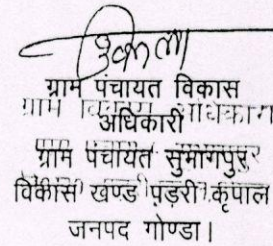 ग्राम पंचायत विकास
अधिकारी
ग्राम पंचायत सुभागपुर
विकास खण्ड पड़री कृपाल
जनपद गोण्डा।